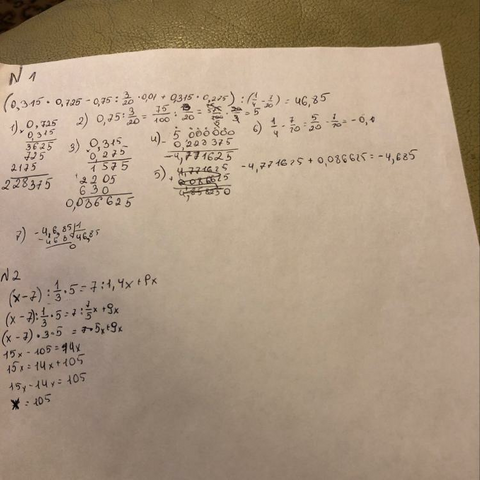 N 1
(0,315 · 0,725 - 0,75 : 3/20 · 0,01 + 0,315 · 0,275) : (1/4 - 7/20) = 46,85
1) · 0,725
0,315
3625
725
2175
228375
2) 0,75 : 3/20 = 75/100 : 3/20 = = 5
3) · 0,315
0,275
1575
2205
630
0,086625
4) - 5,000000
0,228375
-4,771625
5) + 4,771625
-4,771625 + 0,086625 = -4,685
6) 1/4 - 7/20 = 5/20 - 7/20 = -0,1
7) -4,6,85
46,85
0
N 2
(x-7) : 1/3 · 5 = 7 : 1,4x + 9x
(x-7) : 1/3 · 5 = 7 : 7/5 x + 9x
(x-7) · 3 · 5 = 5x + 9x
15x - 105 = 14x
15x = 14x + 105
15x - 14x = 105
x = 105